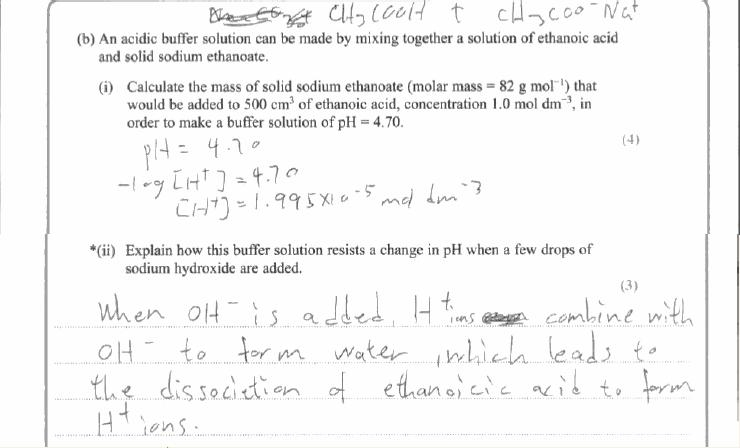 CH3COOH + CH3COO⁻Na⁺
(b) An acidic buffer solution can be made by mixing together a solution of ethanoic acid
and solid sodium ethanoate.
(i) Calculate the mass of solid sodium ethanoate (molar mass = 82 g mol⁻¹) that
would be added to 500 cm³ of ethanoic acid, concentration 1.0 mol dm⁻³, in
order to make a buffer solution of pH = 4.70.
(4)
pH = 4.70
-log [H⁺] = 4.70
[H⁺] = 1.995×10⁻⁵ mol dm⁻³
*(ii) Explain how this buffer solution resists a change in pH when a few drops of
sodium hydroxide are added.
(3)
When OH⁻ is added, H⁺ ions combine with
OH⁻ to form water, which leads to
the dissocietion of ethanoicic acid to form
H⁺ ions.